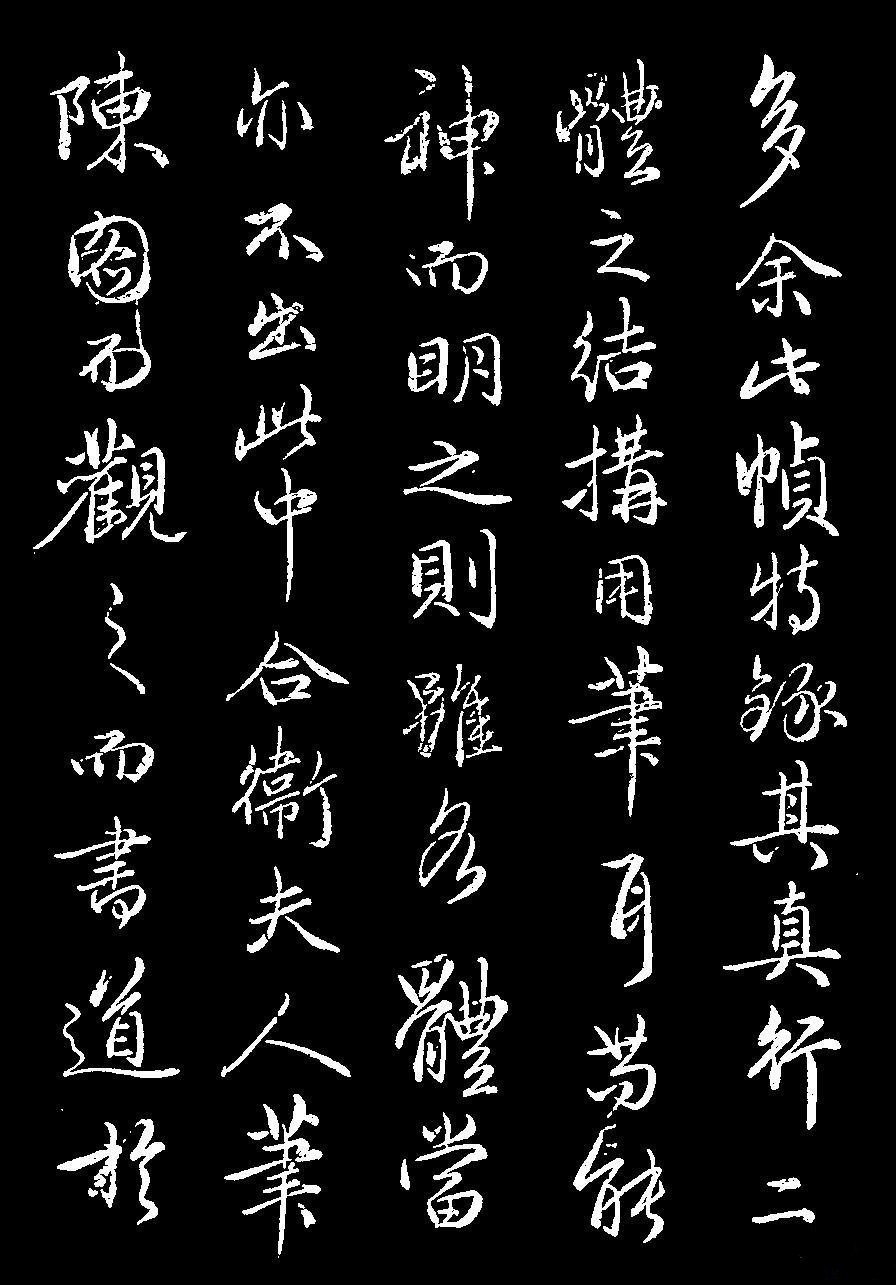 多余此幀特錄其真行二
體之結構用筆耳苟能
神而明之則雖各體當
亦不出此中合衛夫人筆
陳圖而觀之而書道於